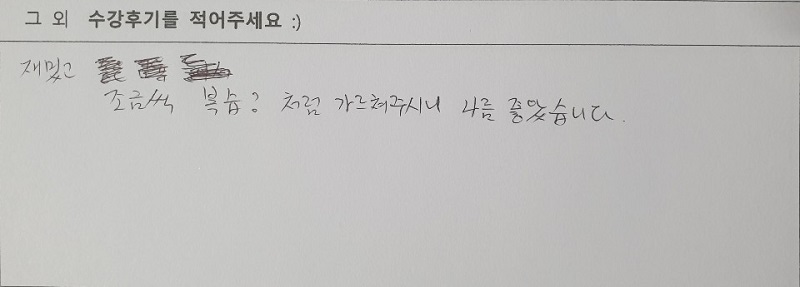 그 외 수강후기를 적어주세요 :)
재밌고
조금씩 복습? 처럼 가르쳐주시니 나름 좋았습니다.